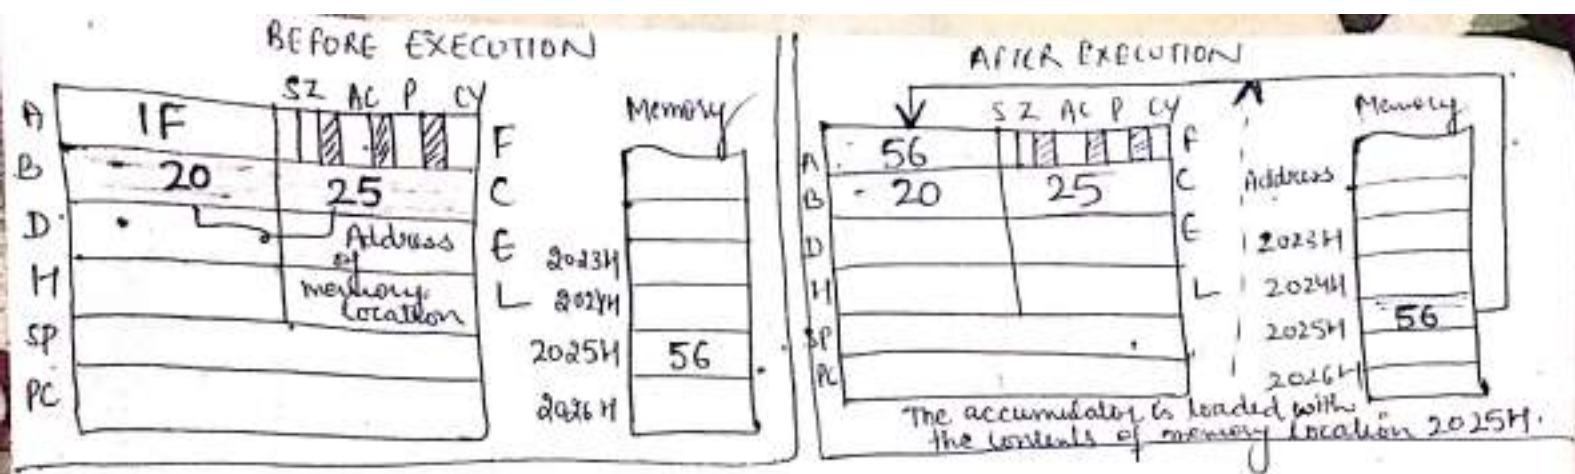 BEFORE EXECUTION
S Z AC P CY
Memory
A 1F F
B 20 25 C
D Address E
of
H memory L
location
SP
PC
2023H
2024H
2025H 56
2026H
AFTER EXECUTION
S Z AC P CY
Memory
A 56 F
B 20 25 C
D E
H L
SP
PC
Address
2023H
2024H
2025H 56
2026H
The accumulator is loaded with
the contents of memory location 2025H.